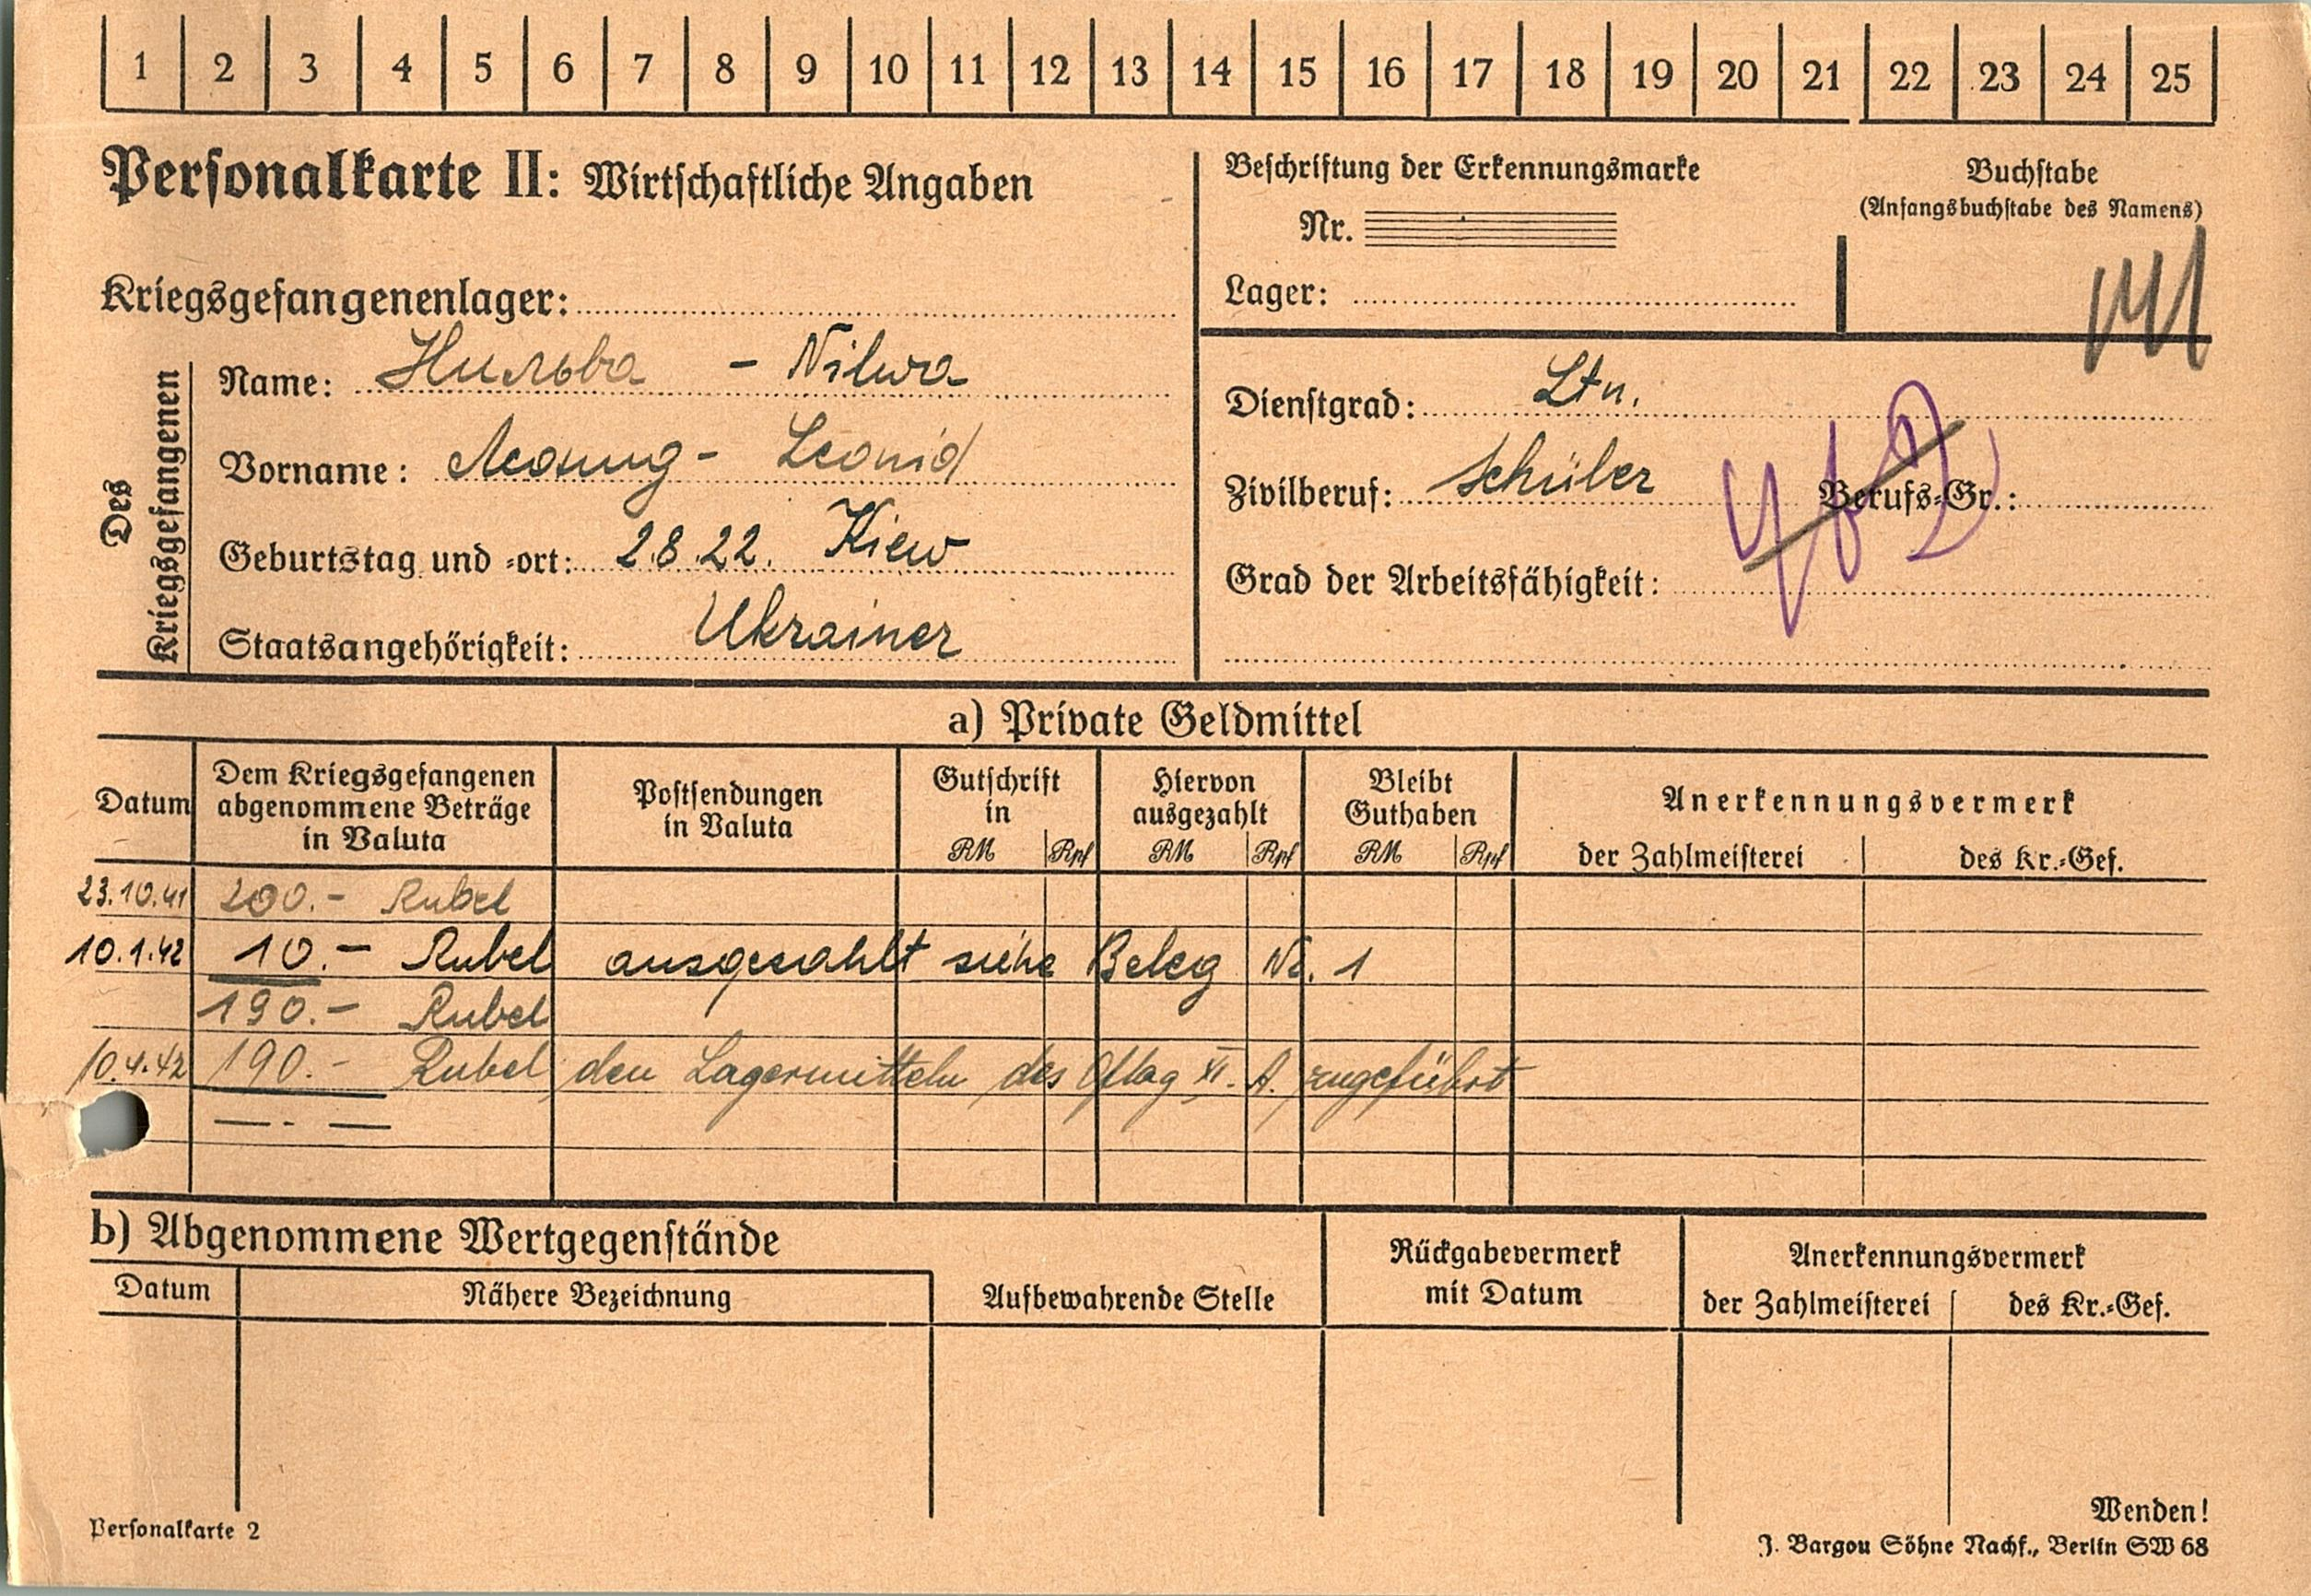 1 2 3 4 5 6 7 8 9 10 11 12 13 14 15 16 17 18 19 20 21 22 23 24 25
Personalkarte II: Wirtschaftliche Angaben
Beschriftung der Erkennungsmarke
Nr.
Lager:
Buchstabe
(Anfangsbuchstabe des Namens)
Kriegsgefangenenlager:
Des Kriegsgefangenen
Name: Нильва - Nilwa
Vorname: Леонид - Leonid
Geburtstag und -ort: 2.8.22. Kiew
Staatsangehörigkeit: Ukrainer
Dienstgrad: Ltn.
Zivilberuf: Schüler Berufs-Gr.:
Grad der Arbeitsfähigkeit:
a) Private Geldmittel
Datum
Dem Kriegsgefangenen
abgenommene Beträge
in Valuta
Postsendungen
in Valuta
Gutschrift
in
RM Rpf
Hiervon
ausgezahlt
RM Rpf
Bleibt
Guthaben
RM Rpf
Anerkennungsvermerk
der Zahlmeisterei des Kr.-Gef.
23.10.41 200.- Rubel
10.1.42 10.- Rubel ausgezahlt siehe Beleg Nr. 1
190.- Rubel
10.4.42 190.- Rubel den Lagermitteln des Oflag XI. A. zugeführt
— . —
b) Abgenommene Wertgegenstände
Datum
Nähere Bezeichnung
Aufbewahrende Stelle
Rückgabevermerk
mit Datum
Anerkennungsvermerk
der Zahlmeisterei des Kr.-Gef.
Wenden!
Personalkarte 2
J. Bargou Söhne Nachf., Berlin SW 68